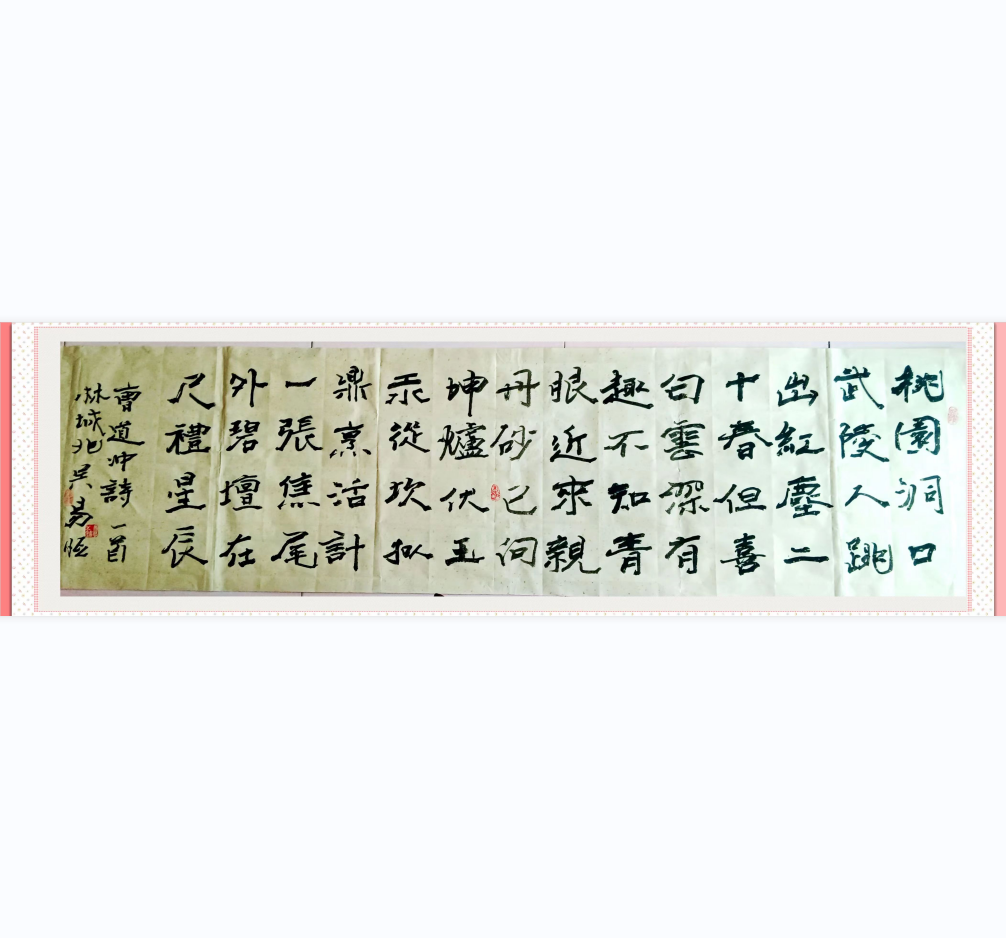 桃園洞口
武陵人跳
出紅塵二
十春但喜
白雲深有
趣不知青
眼近來親
丹砂已向
坤爐伏玉
汞從坎
鼎烹活計
一張焦尾
外碧壇在
尺禮星辰
曹道沖詩一首
林城